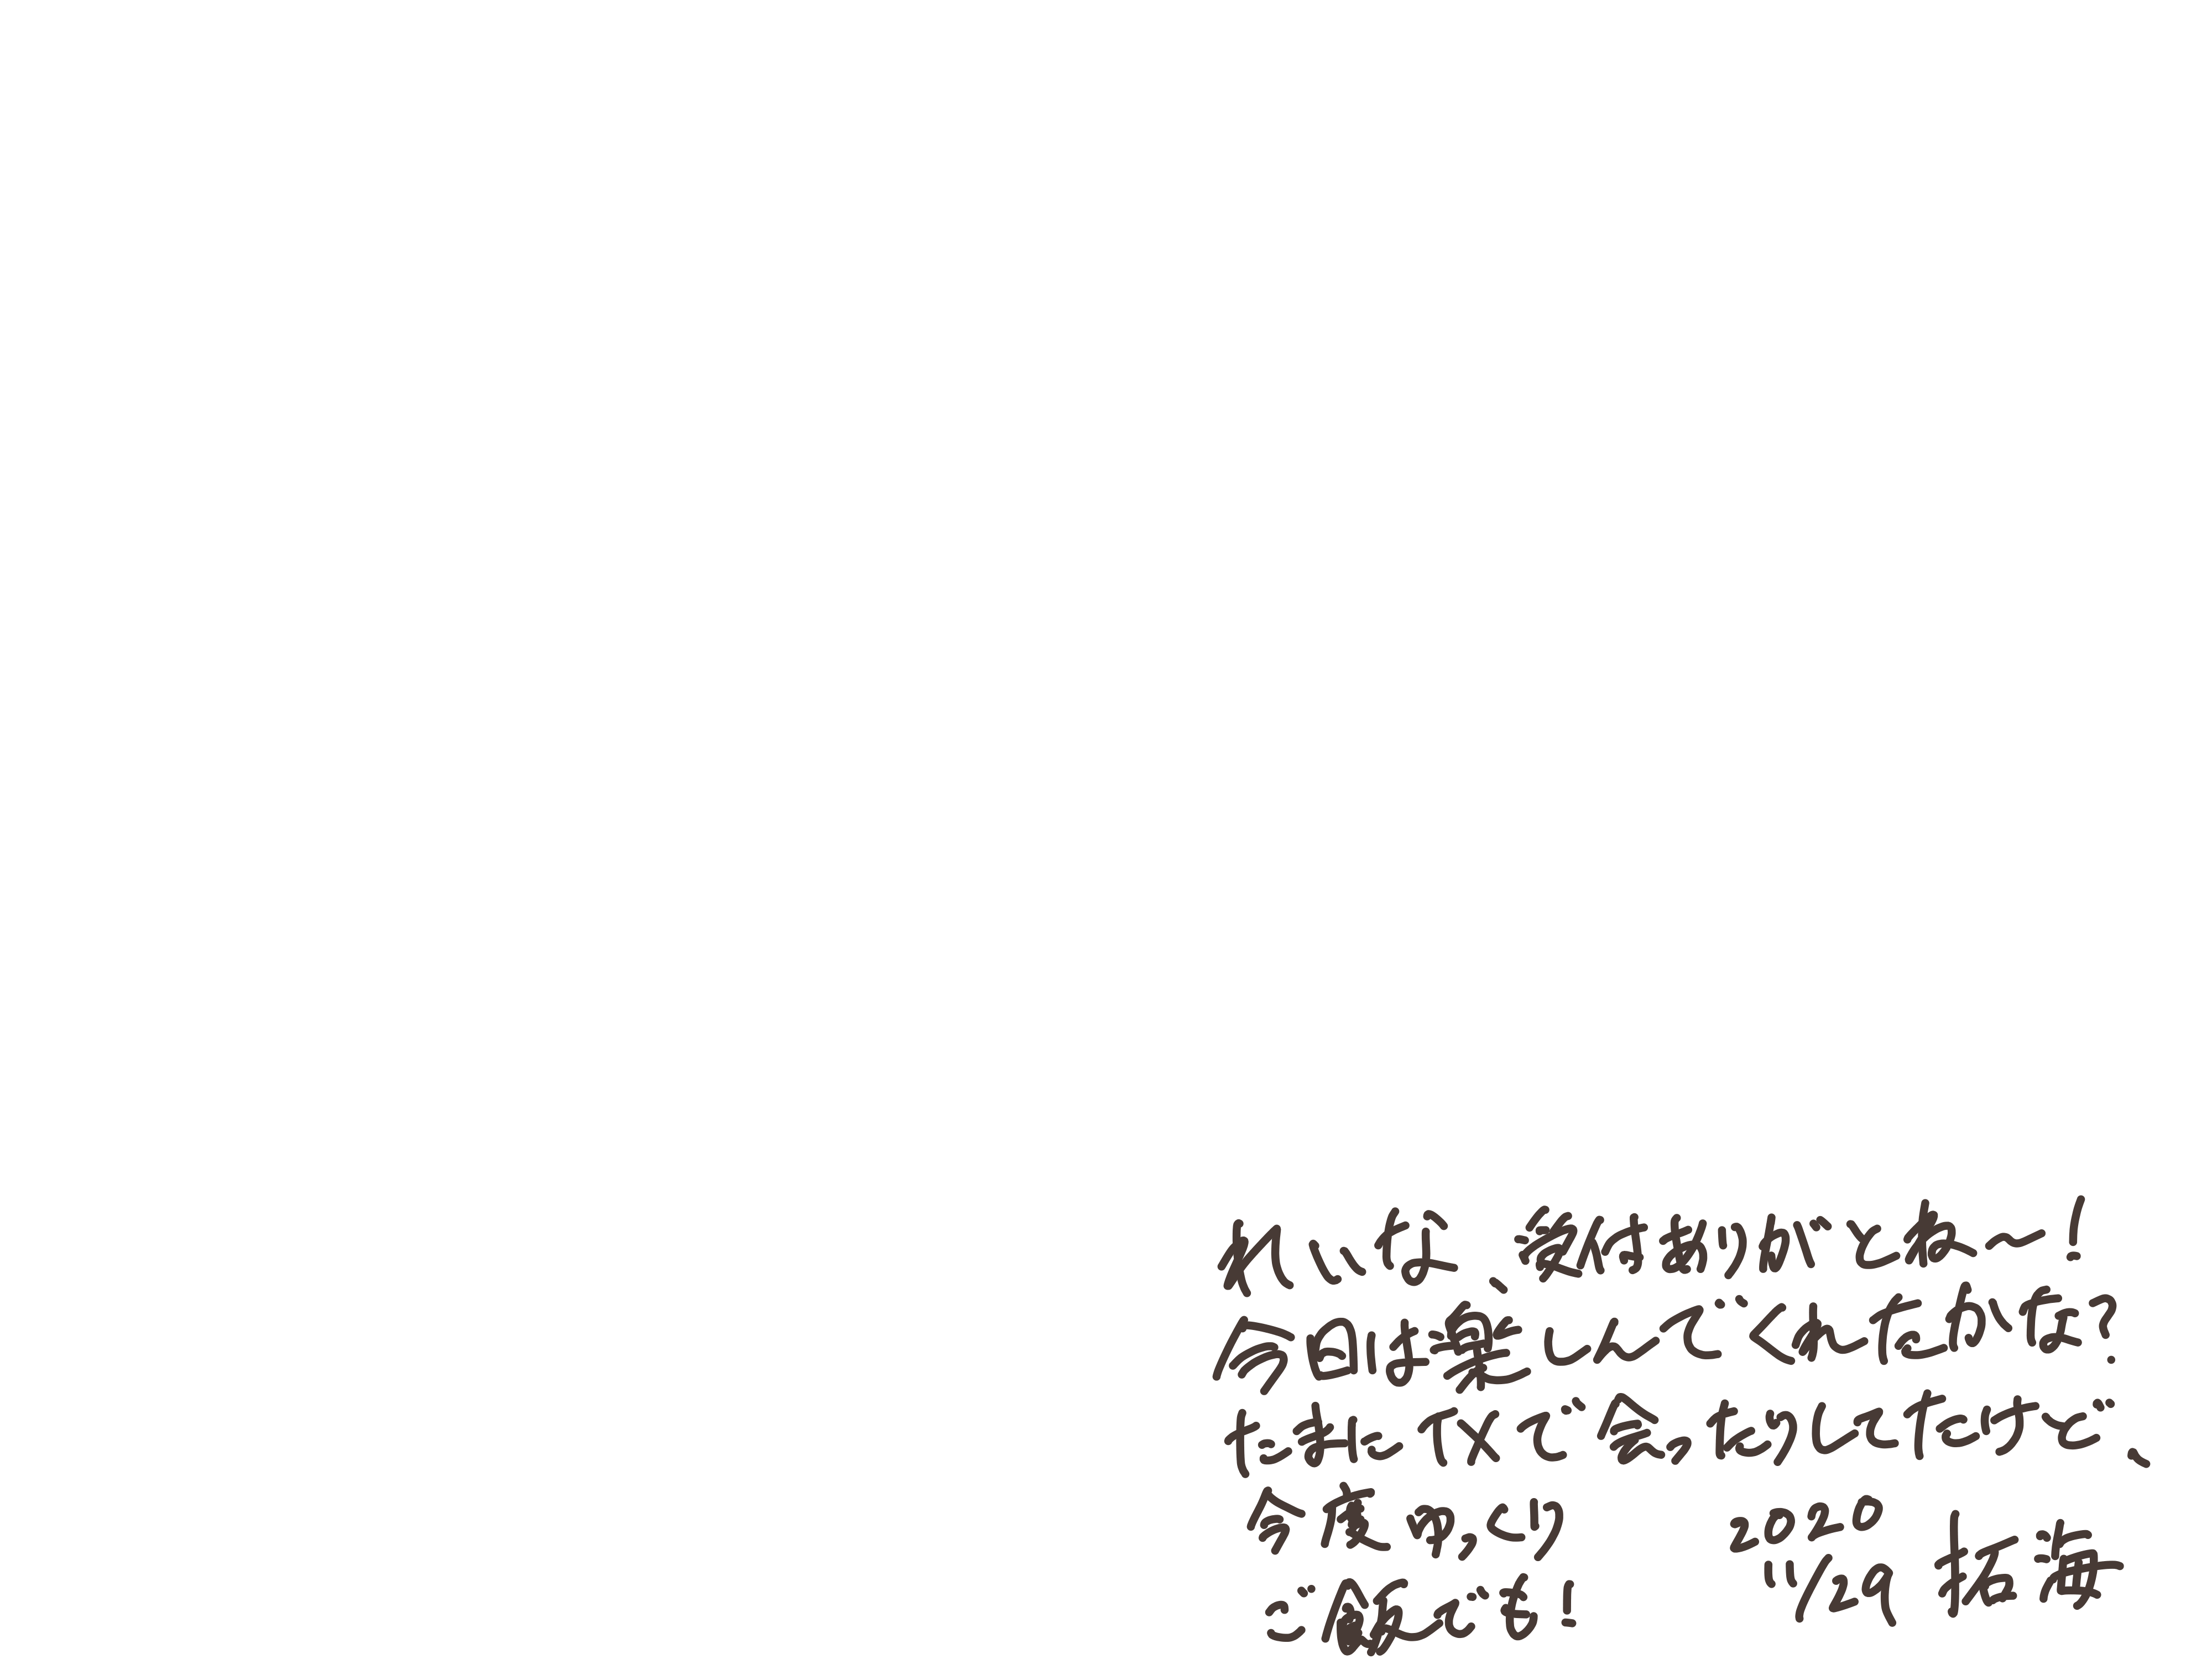 れいな 受付ありがとね〜!
今回は楽しんでくれたかな?
たまにTXで会ったりしてたけど、
今度ゆっくり
ご飯でも!
2020
11/29 拓海